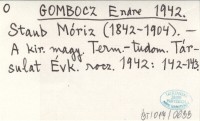 O GOMBOCZ Endre 1942.
Staub Móriz (1842-1904). —
A kir. magy. Term.-tudom. Tár-
sulat Évk. rocz. 1942: 142-143.